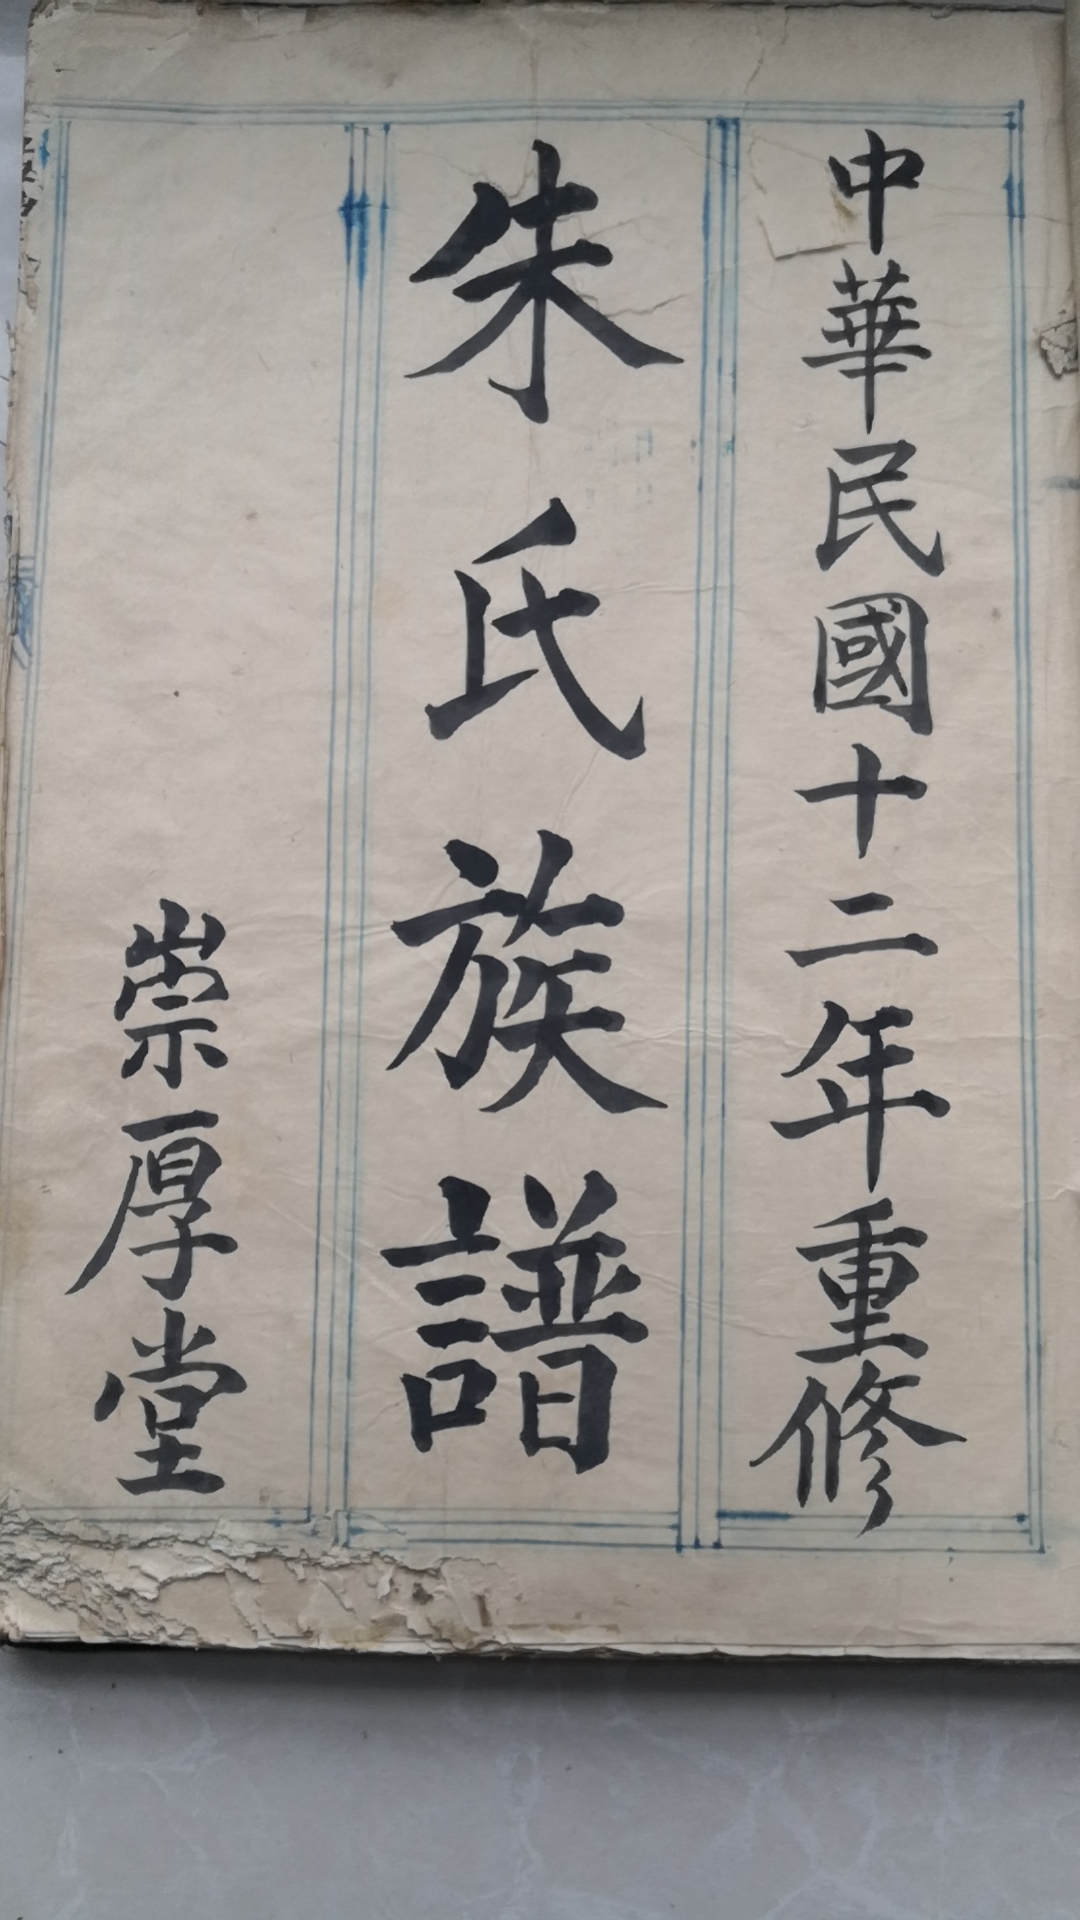 中華民國十二年重修
朱氏族譜
崇厚堂